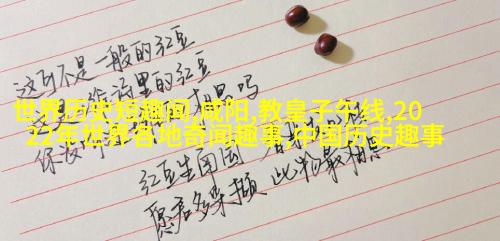 这可不是一般的红豆
诗里的红豆
世界历史短趣闻,咸阳,教皇子午线,20
22年世界各地奇闻趣事,中国历史趣事
你没
红豆生南国
愿君多采撷 此物最相思